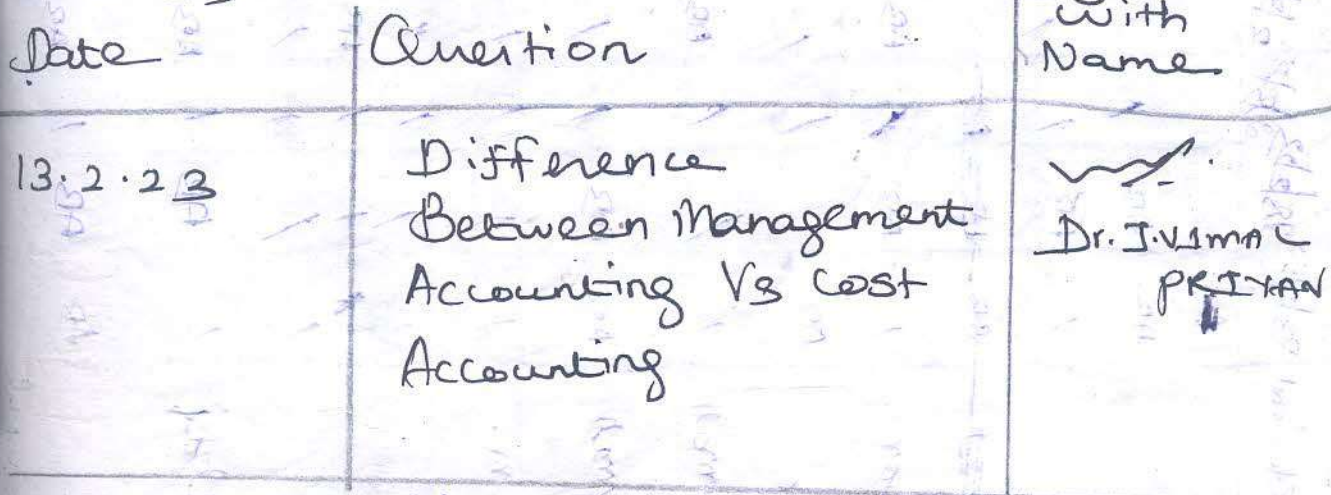 Date
Question
With
Name
13.2.23
Difference
Between Management
Accounting Vs Cost
Accounting
Dr. J. VIMAL
PRIYAN